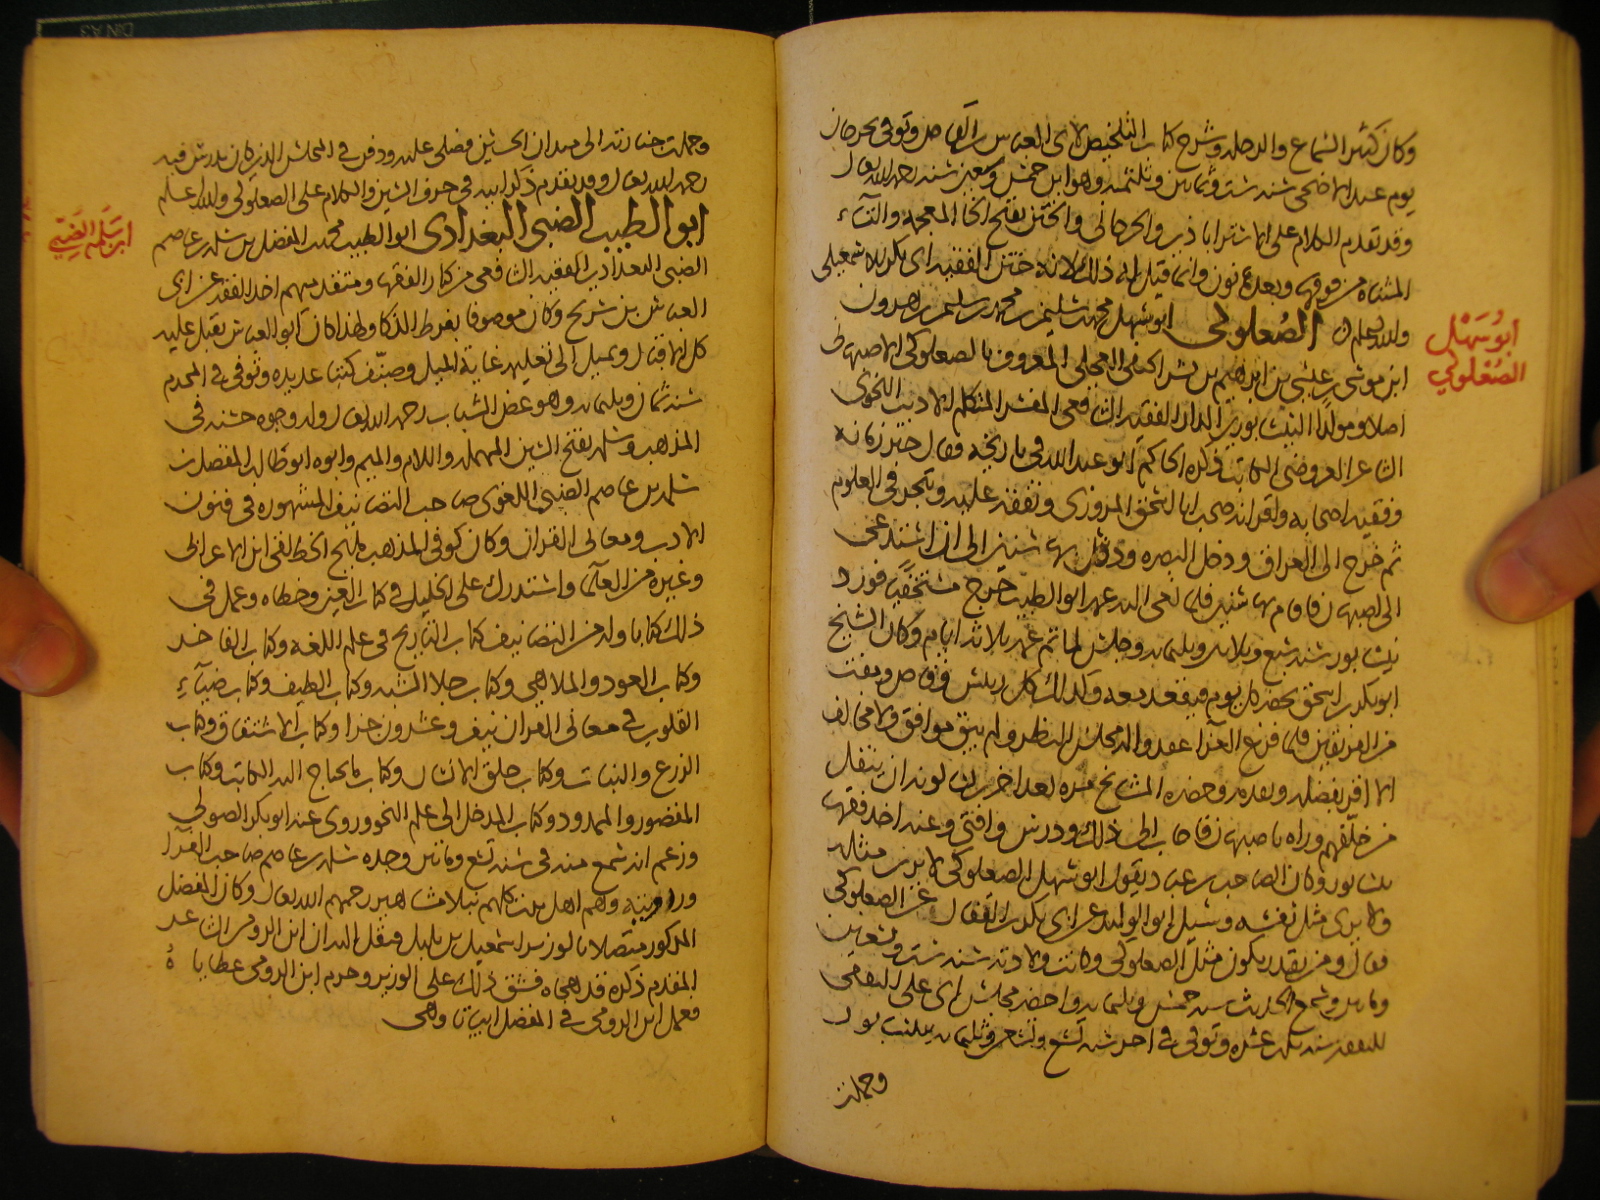 وكان كثير السماع والرحلة وشرح كتاب التلخيص لابي العباس بن القاص وتوفي بجرجان
يوم عيد الاضحى سنة ست وثمانين وثلثمئة وهو ابن خمس وسبعين سنة رحمه الله تعالى
وقد تقدم الكلام على الاستراباذي والجرجاني والختن بفتح الخا المعجمة والتاء
المثناة من فوقها وبعدها نون وانما قيل له ذلك لانه ختن الفقيه ابي بكر الاسمعيلي
والله اعلم الصعلوكي ابو سهل محمد بن سليمن بن محمد بن سليمن بن هرون
ابن موسى بن عيسى بن ابراهيم بن بشر الحنفي العجلي المعروف بالصعلوكي الاصبهاني
اصلا ومولدا النيسابوري الدار الفقيه الشافعي المفسر المتكلم الاديب النحوي
الشاعر العروضي الكاتب ذكره الحاكم ابو عبد الله في تاريخه وقال حبر زمانه
وفقيه اصحابه واقرانه صحب ابا اسحق المروزي وتفقه عليه وتبحر في العلوم
ثم خرج الى العراق ودخل البصرة ودرس بها سنين الى ان استدعي
الى اصبهان فاقام بها سنين فلما نعي اليه عمه ابو الطيب خرج مستخفيا فورد
نيسابور سنة سبع وثلاثين وثلثمائة وجلس لماتم عمه ثلاثة ايام وكان الشيخ
ابو بكر بن اسحق يحضر كل يوم فيقعد معه وكذلك كل رئيس وقاض ومفت
من الفريقين فلما فرغ العزا عقدوا له مجلس النظر ولم يبق موافق ولا مخالف
الا اقر بفضله وتقدمه وحضره المشايخ مرة بعد اخرى يسالونه ان ينقل
من خلفهم وراه باصبهان فاجاب الى ذلك ودرس وافتى وعنه اخذ فقها
نيسابور وكان الصاحب بن عباد يقول ابو سهل الصعلوكي لا نرى مثله
ولا يرى مثل نفسه وسيل ابو الوليد عن ابي بكر القفال عن الصعلوكي
فقال ومن يقدر يكون مثل الصعلوكي وكانت ولادته سنة ست وتسعين
ومائتين وسمع الحديث سنة خمس وثلثمائة وحضر مجلس ابي علي الثقفي
للتفقه سنة ثلث عشرة وتوفي في اخر سنة تسع وستين وثلثمائة بنيسابور
وحملت
ابو سهل
الصعلوكي
وحملت جنازته الى ميدان الحسين فصلى عليه ودفن في المجلس الذي كان يدرس فيه
رحمه الله تعالى وقد تقدم ذكر ابنه في حرف السين والكلام على الصعلوكي والله اعلم
ابو الطيب الضبي البغدادي ابو الطيب محمد بن المفضل بن سلمة بن عاصم
الضبي البغدادي الفقيه الشافعي من كبار الفقها ومتقدميهم اخذ الفقه عن ابي
العباس بن سريج وكان موصوفا بفرط الذكا ولهذا كان ابو العباس يقبل عليه
كل الاقبال ويميل الى تعليمه غاية الميل وصنف كتبا عديدة وتوفي في المحرم
سنة ثمان وثلثمائة وهو غض الشباب رحمه الله تعالى وله وجوه حسنة في
المذهب وسلمة بفتح السين المهملة واللام والميم وابوه ابو طالب المفضل بن
سلمة بن عاصم الضبي اللغوي صاحب التصانيف المشهورة في فنون
الادب ومعاني القران وكان كوفي المذهب مليح الخط لقي ابن الاعرابي
وغيره من العلما واستدرك على الخليل في كتاب العين وخطاه وعمل في
ذلك كتابا وله من التصانيف كتاب التاريخ في علم اللغة وكتاب الفاخر
وكتاب العود والملاهي وكتاب جلا الشبه وكتاب الطيف وكتاب ضياء
القلوب في معاني القران نيف وعشرون جزا وكتاب الاشتقاق وكتاب
الزرع والنبات وكتاب خلق الانسان وكتاب ما يحتاج اليه الكاتب وكتاب
المقصور والممدود وكتاب المدخل الى علم النحو وروى عنه ابو بكر الصولي
وزعم انه سمع منه في سنة تسع ومائتين وجده سلمة بن عاصم صاحب الفرا
وراويته وهم اهل بيت كلهم نبلا مشاهير رحمهم الله تعالى وكان المفضل
المذكور متصلا بالوزير اسمعيل بن بلبل فنقل اليه ان ابن الرومي الشاعر
المقدم ذكره قد هجاه فشق ذلك على الوزير وحرم ابن الرومي عطاياه
فعمل ابن الرومي في المفضل ابياتا وهي
ابن سلمة الضبي